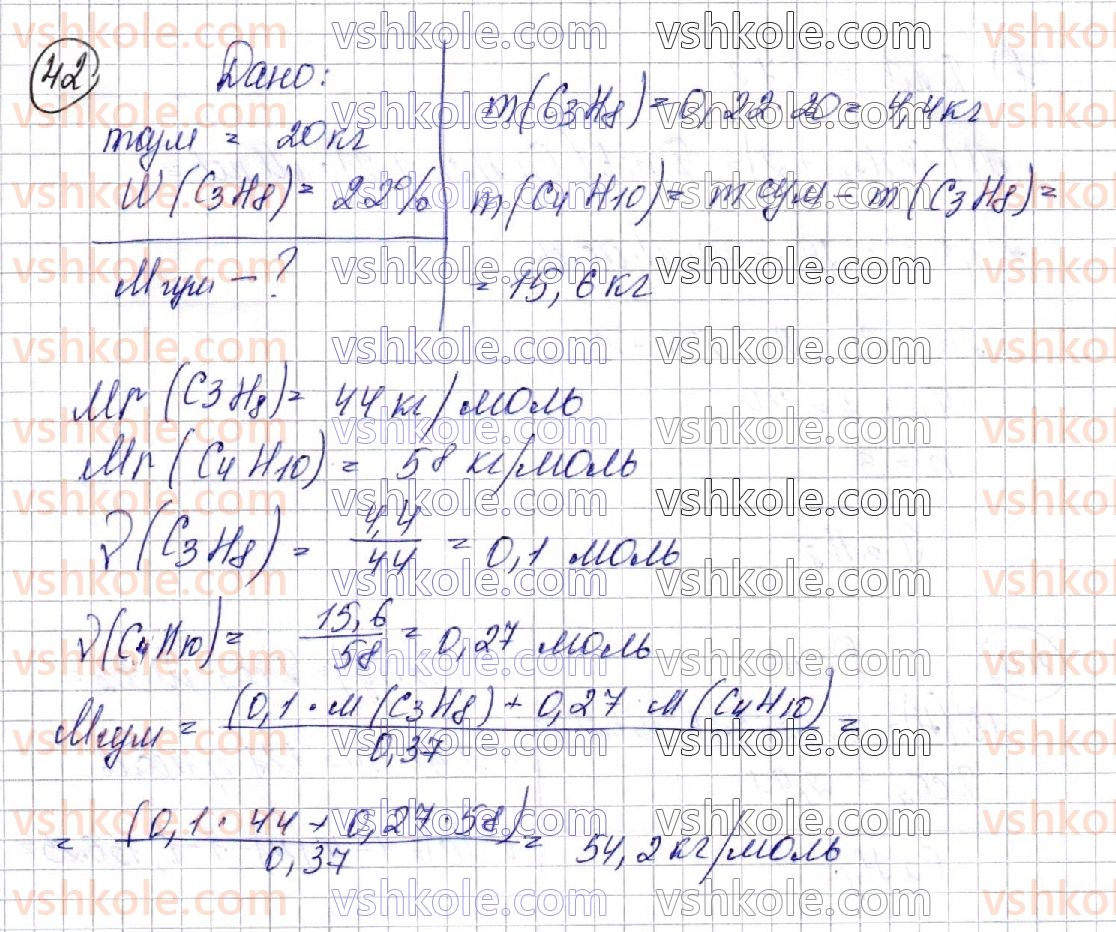 42
Дано:
mсум = 20кг
W(C3H8) = 22%
Mсум - ?
m(C3H8) = 0,22 20 = 4,4кг
m(C4H10) = mсум - m(C3H8) =
= 15,6кг
Mr(C3H8) = 44кг/моль
Mr(C4H10) = 58 кг/моль
ν(C3H8) = 4,4/44 = 0,1 моль
ν(C4H10) = 15,6/58 = 0,27 моль
Mсум = (0,1 · M(C3H8) + 0,27 · M(C4H10)/0,37 =
= (0,1 · 44 + 0,27 · 58)/0,37 = 54,2кг/моль
vshkole.com